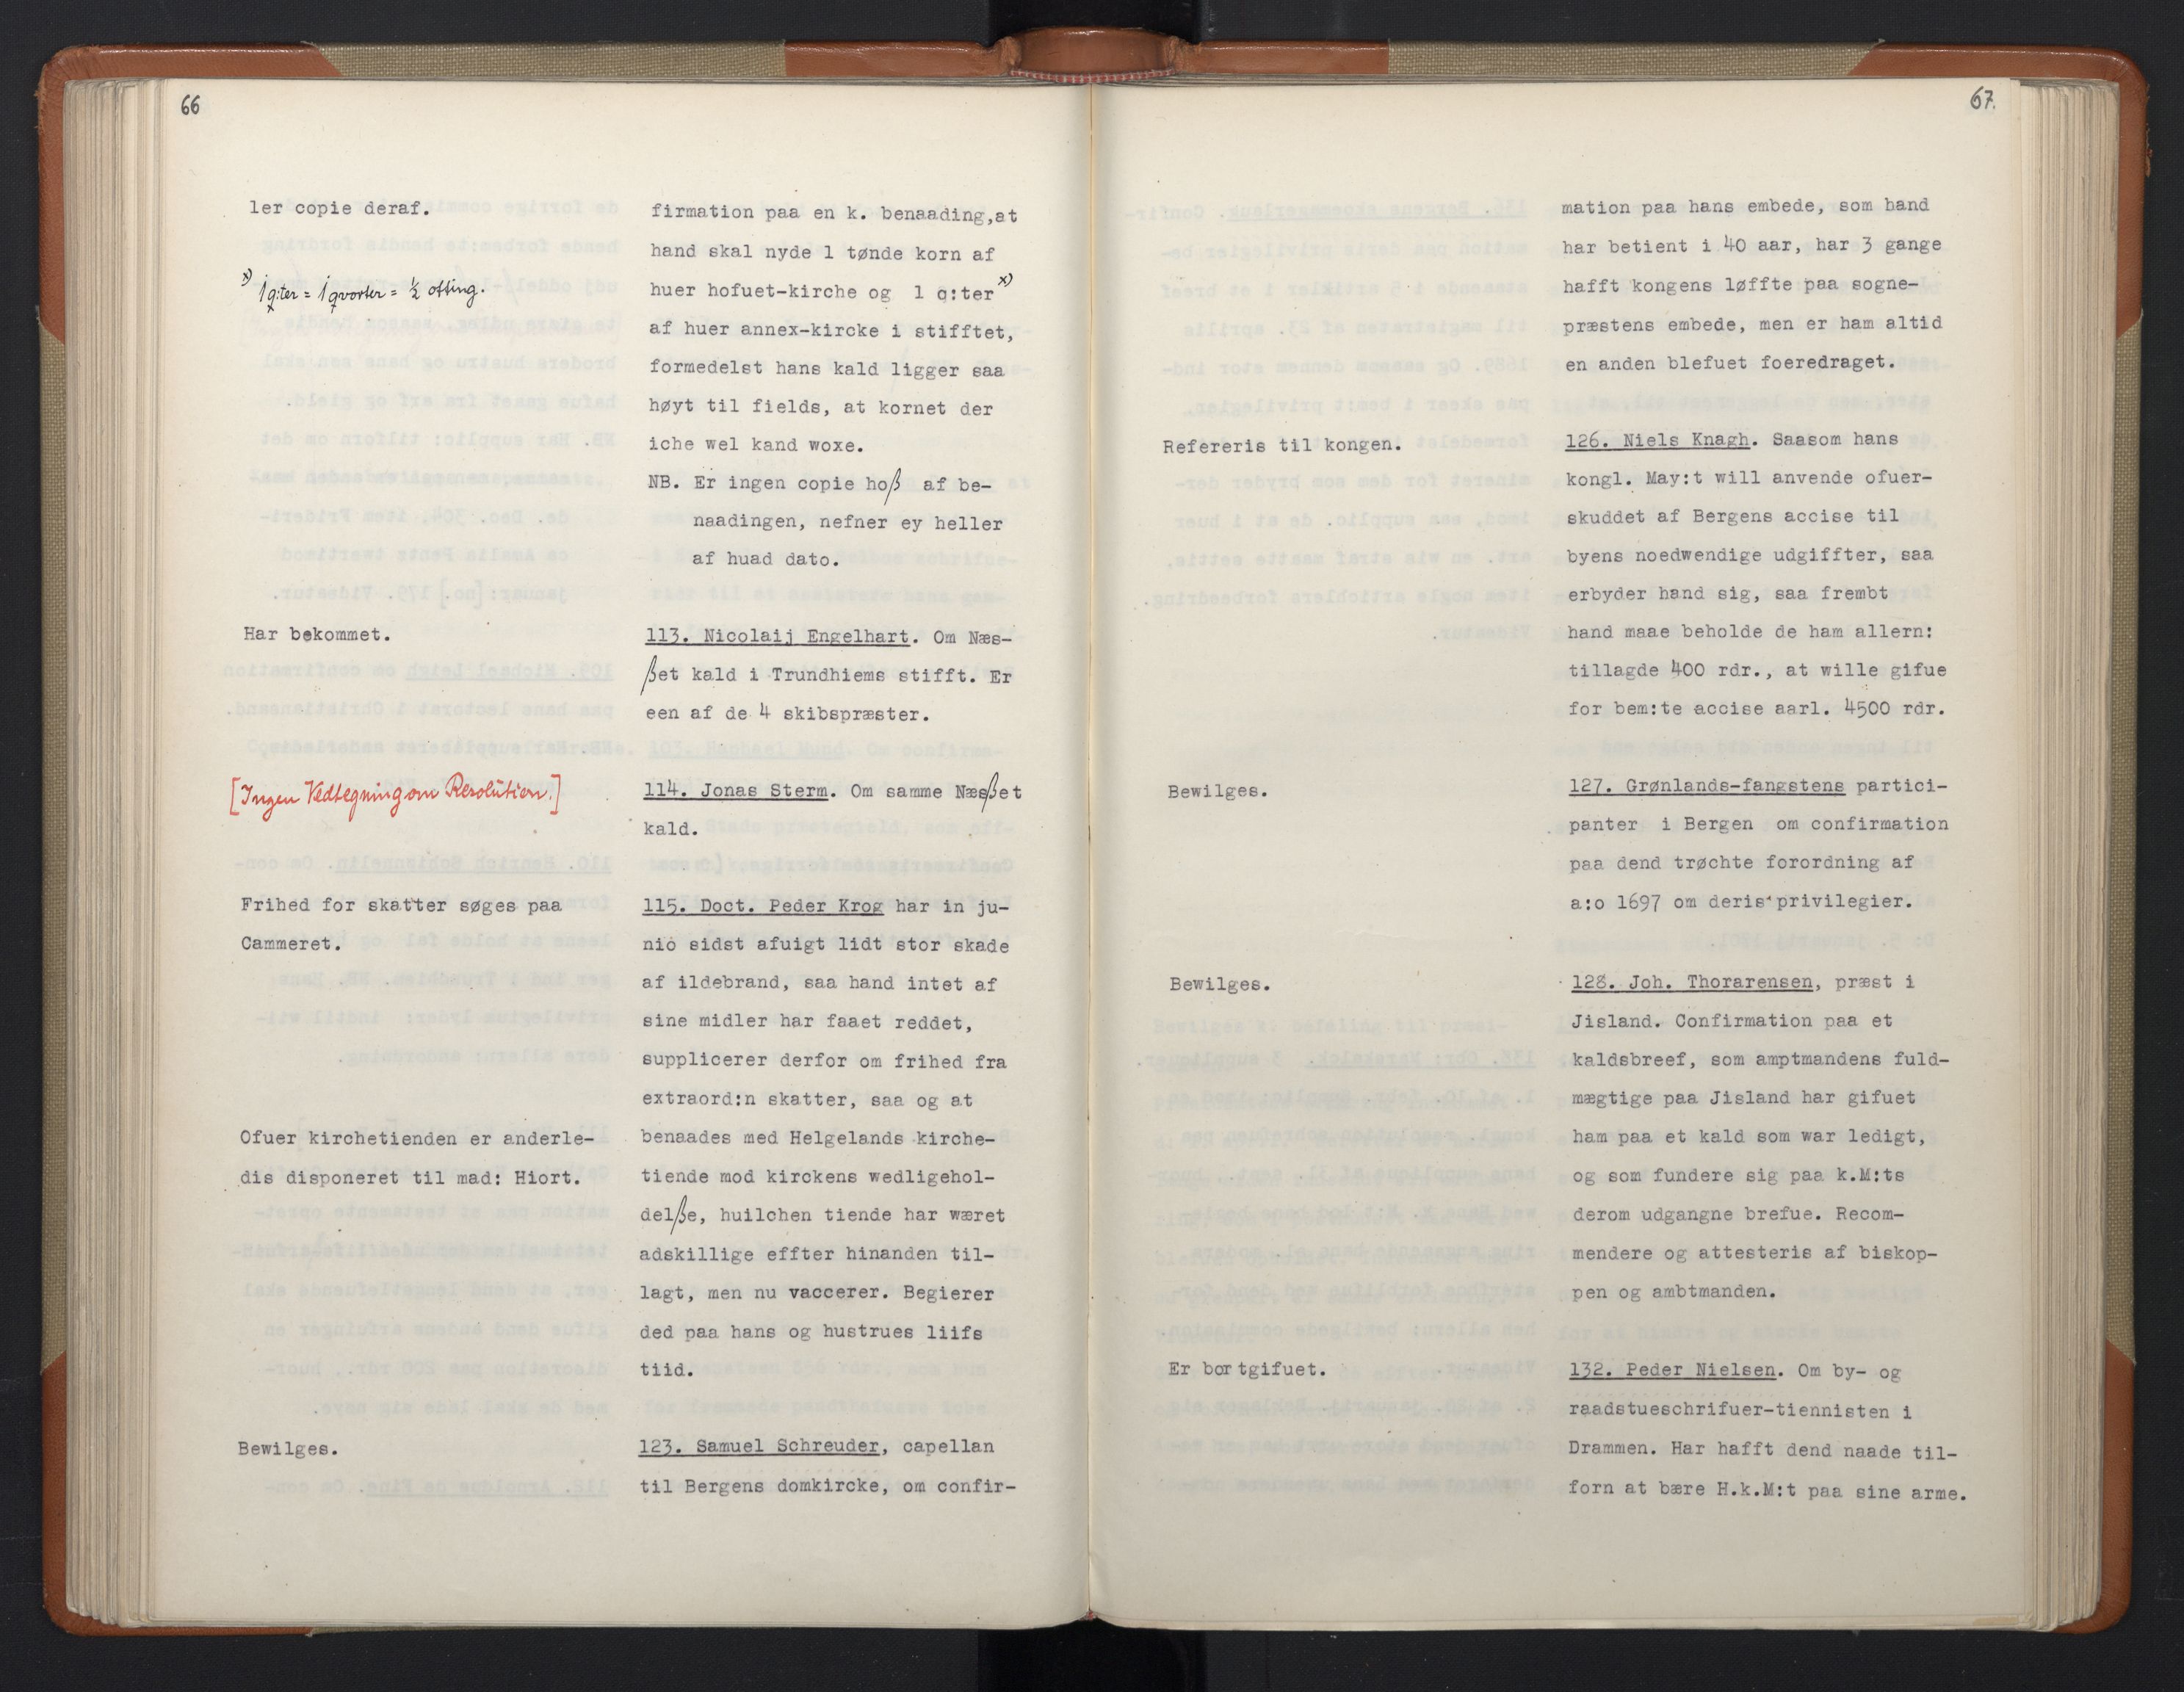 66
ler copie deraf.
x) 1 q:ter = 1 qvorter = ½ otting.
Har bekommet.
[Ingen Vedtegning om Resolution.]
Frihed for skatter søges paa
Cammeret.
Ofuer kirchetienden er anderle-
dis disponeret til mad: Hiort.
Bewilges.
firmation paa en k. benaading,at
hand skal nyde 1 tønde korn af
huer hofuet-kirche og 1 q:ter x)
af huer annex-kircke i stifftet,
formedelst hans kald ligger saa
høyt til fields, at kornet der
iche wel kand woxe.
NB. Er ingen copie hoß af be-
naadingen, nefner ey heller
af huad dato.
113. Nicolaij Engelhart. Om Næs-
ßet kald i Trundhiems stifft. Er
een af de 4 skibspræster.
114. Jonas Sterm. Om samme Næsßet
kald.
115. Doct. Peder Krog har in ju-
nio sidst afuigt lidt stor skade
af ildebrand, saa hand intet af
sine midler har faaet reddet,
supplicerer derfor om frihed fra
extraord:n skatter, saa og at
benaades med Helgelands kirche-
tiende mod kirckens wedligehol-
delße, huilchen tiende har wæret
adskillige effter hinanden til-
lagt, men nu vaccerer. Begierer
ded paa hans og hustrues liifs
tiid.
123. Samuel Schreuder, capellan
til Bergens domkircke, om confir-
67.
Refereris til kongen.
Bewilges.
Bewilges.
Er bortgifuet.
mation paa hans embede, som hand
har betient i 40 aar, har 3 gange
hafft kongens løffte paa sogne-
præstens embede, men er ham altid
en anden blefuet foeredraget.
126. Niels Knagh. Saasom hans
kongl. May:t will anvende ofuer-
skuddet af Bergens accise til
byens noedwendige udgiffter, saa
erbyder hand sig, saa frembt
hand maae beholde de ham allern:
tillagde 400 rdr., at wille gifue
for bem:te accise aarl. 4500 rdr.
127. Grønlands-fangstens partici-
panter i Bergen om confirmation
paa dend trøchte forordning af
a:o 1697 om deris privilegier.
128. Joh. Thorarensen, præst i
Jisland. Confirmation paa et
kaldsbreef, som amptmandens fuld-
mægtige paa Jisland har gifuet
ham paa et kald som war ledigt,
og som fundere sig paa k.M:ts
derom udgangne brefue. Recom-
mendere og attesteris af biskop-
pen og ambtmanden.
132. Peder Nielsen. Om by- og
raadstueschrifuer-tiennisten i
Drammen. Har hafft dend naade til-
forn at bære H.k.M:t paa sine arme.